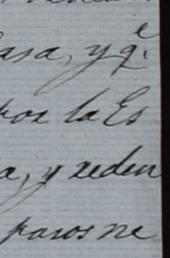 asa, y qe.
por la Es
a, y reden
pasos ne